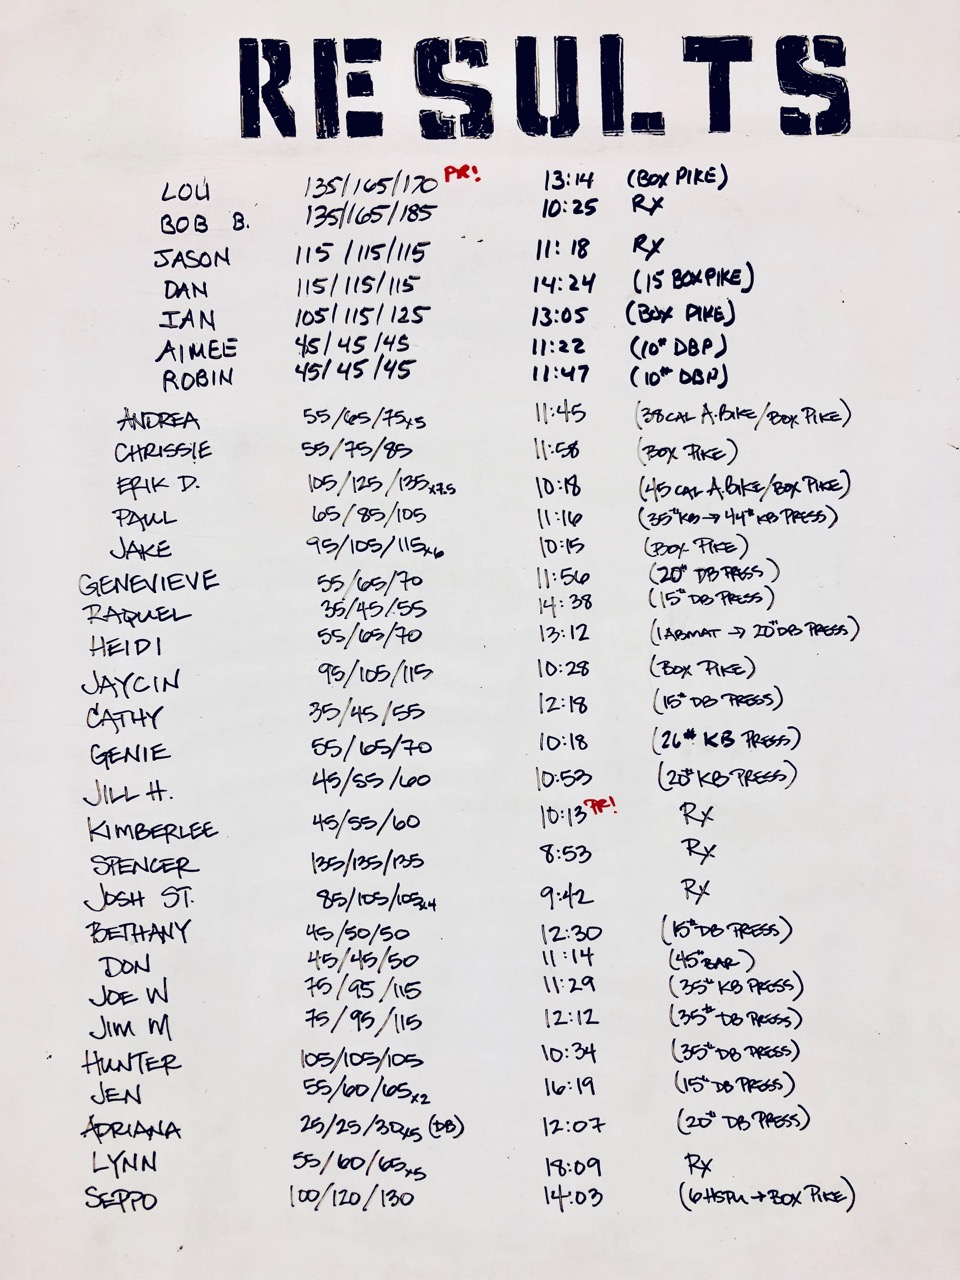 RESULTS
LOU 135/165/170 PR! 13:14 (BOX PIKE)
BOB B. 135/165/185 10:25 RX
JASON 115/115/115 11:18 RX
DAN 115/115/115 14:24 (15 BOX PIKE)
IAN 105/115/125 13:05 (BOX PIKE)
AIMEE 45/45/45 11:22 (10# DBP)
ROBIN 45/45/45 11:47 (10# DBP)
ANDREA 55/65/75x5 11:45 (38 CAL A.BIKE/BOX PIKE)
CHRISSIE 55/75/85 11:58 (BOX PIKE)
ERIK D. 105/125/135x7.5 10:18 (45 CAL A.BIKE/BOX PIKE)
PAUL 65/85/105 11:16 (35# KB → 44# KB PRESS)
JAKE 95/105/115x6 10:15 (BOX PIKE)
GENEVIEVE 55/65/70 11:56 (20# DB PRESS)
RAQUEL 35/45/55 14:38 (15# DB PRESS)
HEIDI 55/65/70 13:12 (1 ABMAT → 20# DB PRESS)
JAYCIN 95/105/115 10:28 (BOX PIKE)
CATHY 35/45/55 12:18 (15# DB PRESS)
GENIE 55/65/70 10:18 (26# KB PRESS)
JILL H. 45/55/60 10:53 (20# KB PRESS)
KIMBERLEE 45/55/60 10:13 PR! Rx
SPENCER 135/135/135 8:53 Rx
JOSH ST. 85/105/105x4 9:42 Rx
BETHANY 45/50/50 12:30 (15# DB PRESS)
DON 45/45/50 11:14 (45# BAR)
JOE W 75/95/115 11:29 (35# KB PRESS)
JIM M 75/95/115 12:12 (35# DB PRESS)
HUNTER 105/105/105 10:34 (35# DB PRESS)
JEN 55/60/65x2 16:19 (15# DB PRESS)
ADRIANA 25/25/30x5 (DB) 12:07 (20# DB PRESS)
LYNN 55/60/65x5 18:09 Rx
SEPPO 100/120/130 14:03 (6 HSPU → BOX PIKE)